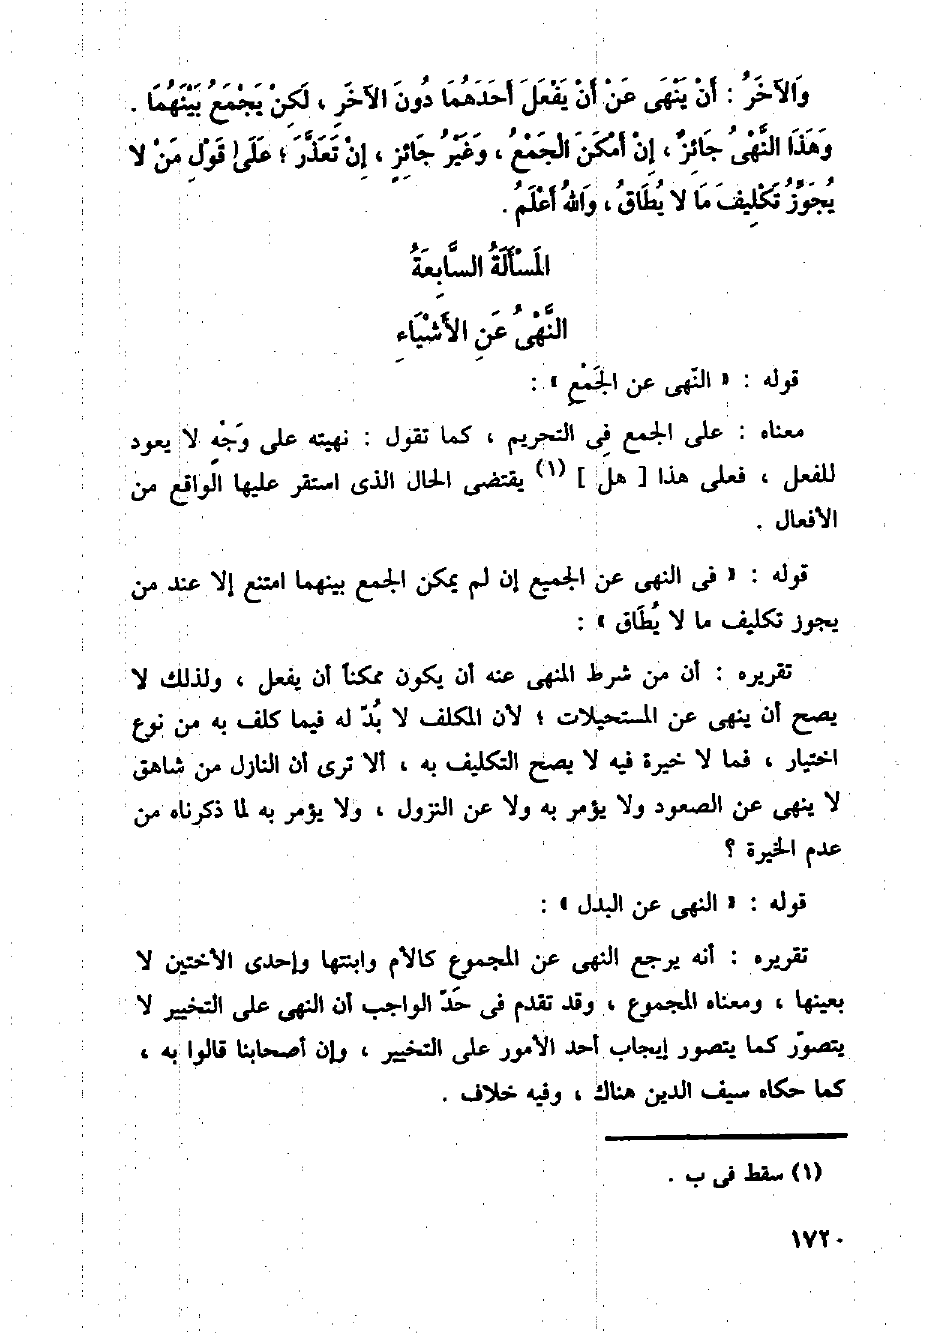 وَالآخَرُ : أَنْ يَنْهَى عَنْ أَنْ يَفْعَلَ أَحَدَهُمَا دُونَ الآخَرِ ، لَكِنْ يَجْمَعُ بَيْنَهُمَا .
وَهَذَا النَّهْىُ جَائِزٌ ، إِنْ أَمْكَنَ الْجَمْعُ ، وَغَيْرُ جَائِزٍ ، إِنْ تَعَذَّرَ ؛ عَلَى قَوْلِ مَنْ لا
يُجَوِّزُ تَكْلِيفَ مَا لا يُطَاقُ ، وَاللهُ أَعْلَمُ .
المَسْأَلَةُ السَّابِعَةُ
النَّهْىُ عَنِ الأَشْيَاءِ
قوله : « النّهى عن الجَمْعِ » :
معناه : على الجمع فِى التحريم ، كما تقول : نهيته على وَجْهٍ لا يعود
للفعل ، فعلى هذا [ هل ] (١) يقتضى الحال الذى استقر عليها الواقع من
الأفعال .
قوله : « فى النهى عن الجميع إن لم يمكن الجمع بينهما امتنع إلا عند من
يجوز تكليف ما لا يُطَاق » :
تقريره : أن من شرط المنهى عنه أن يكون ممكناً أن يفعل ، ولذلك لا
يصح أن ينهى عن المستحيلات ؛ لأن المكلف لا بُدّ له فيما كلف به من نوع
اختيار ، فما لا خيرة فيه لا يصح التكليف به ، ألا ترى أن النازل من شاهق
لا ينهى عن الصعود ولا يؤمر به ولا عن النزول ، ولا يؤمر به لما ذكرناه من
عدم الخيرة ؟
قوله : « النهى عن البدل » :
تقريره : أنه يرجع النهى عن المجموع كالأم وابنتها وإحدى الأختين لا
بعينها ، ومعناه المجموع ، وقد تقدم فى حَدّ الواجب أن النهى على التخيير لا
يتصوّر كما يتصور إيجاب أحد الأمور على التخيير ، وإن أصحابنا قالوا به ،
كما حكاه سيف الدين هناك ، وفيه خلاف .
(١) سقط فى ب .
١٧٢٠